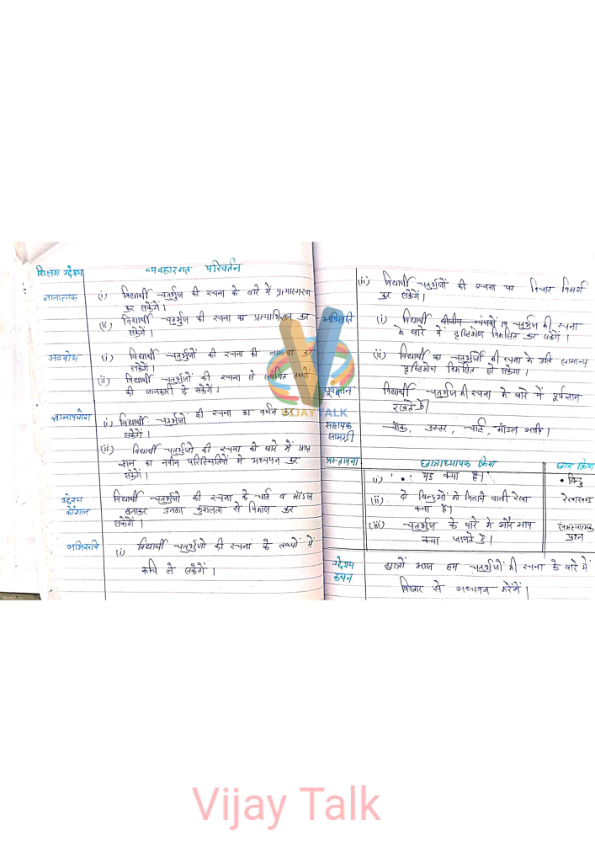 शिक्षण उद्देश्य व्यवहारगत परिवर्तन
ज्ञानात्मक (i) विद्यार्थी चतुर्भुज की रचना के बारे में प्रत्यास्मरण
कर सकेंगे।
(ii) विद्यार्थी चतुर्भुज की रचना का प्रत्याभिज्ञान कर
सकेंगे।
अवबोध (i) विद्यार्थी चतुर्भुजों की रचना की व्याख्या कर
सकेंगे।
(ii) विद्यार्थी चतुर्भुजों की रचना से संबंधित तथ्यों
की जानकारी दे सकेंगे।
ज्ञानोपयोग (i) विद्यार्थी चतुर्भुजों की रचना का वर्णन कर
सकेंगे।
(ii) विद्यार्थी चतुर्भुजों की रचना के बारे में प्राप्त
ज्ञान का नवीन परिस्थितियों में अध्ययन कर
सकेंगे।
उद्देश्य कौशल विद्यार्थी चतुर्भुजों की रचना के चार्ट व मॉडल
बनाकर उनका कुशलता से विकास कर
सकेंगे।
अभिरुचि (i) विद्यार्थी चतुर्भुजों की रचना के तथ्यों में
रूचि ले सकेंगे।
(ii) विद्यार्थी चतुर्भुजों की रचना पर विचार विमर्श
कर सकेंगे।
अभिवृत्ति (i) विद्यार्थी चतुर्भुज की रचना
के बारे में दृष्टिकोण विकसित कर सकेंगे।
(ii) विद्यार्थी का चतुर्भुजों की रचना के प्रति सामान्य
दृष्टिकोण विकसित हो सकेगा।
पूर्वज्ञान विद्यार्थी चतुर्भुज की रचना के बारे में पूर्वज्ञान
रखते हैं।
सहायक सामग्री चॉक, डस्टर, चार्ट, मॉडल आदि।
प्रस्तावना छात्राध्यापक क्रिया छात्र क्रिया
(i) '•' यह क्या है। • बिन्दु
(ii) दो बिन्दुओं को मिलाने वाली रेखा रेखाखण्ड
क्या है।
(iii) चतुर्भुज के बारे में और आप समस्यात्मक
क्या जानते है। प्रश्न
उद्देश्य कथन छात्रों आज हम चतुर्भुजों की रचना के बारे में
विस्तार से अध्ययन करेंगे।
VIJAY TALK
Vijay Talk